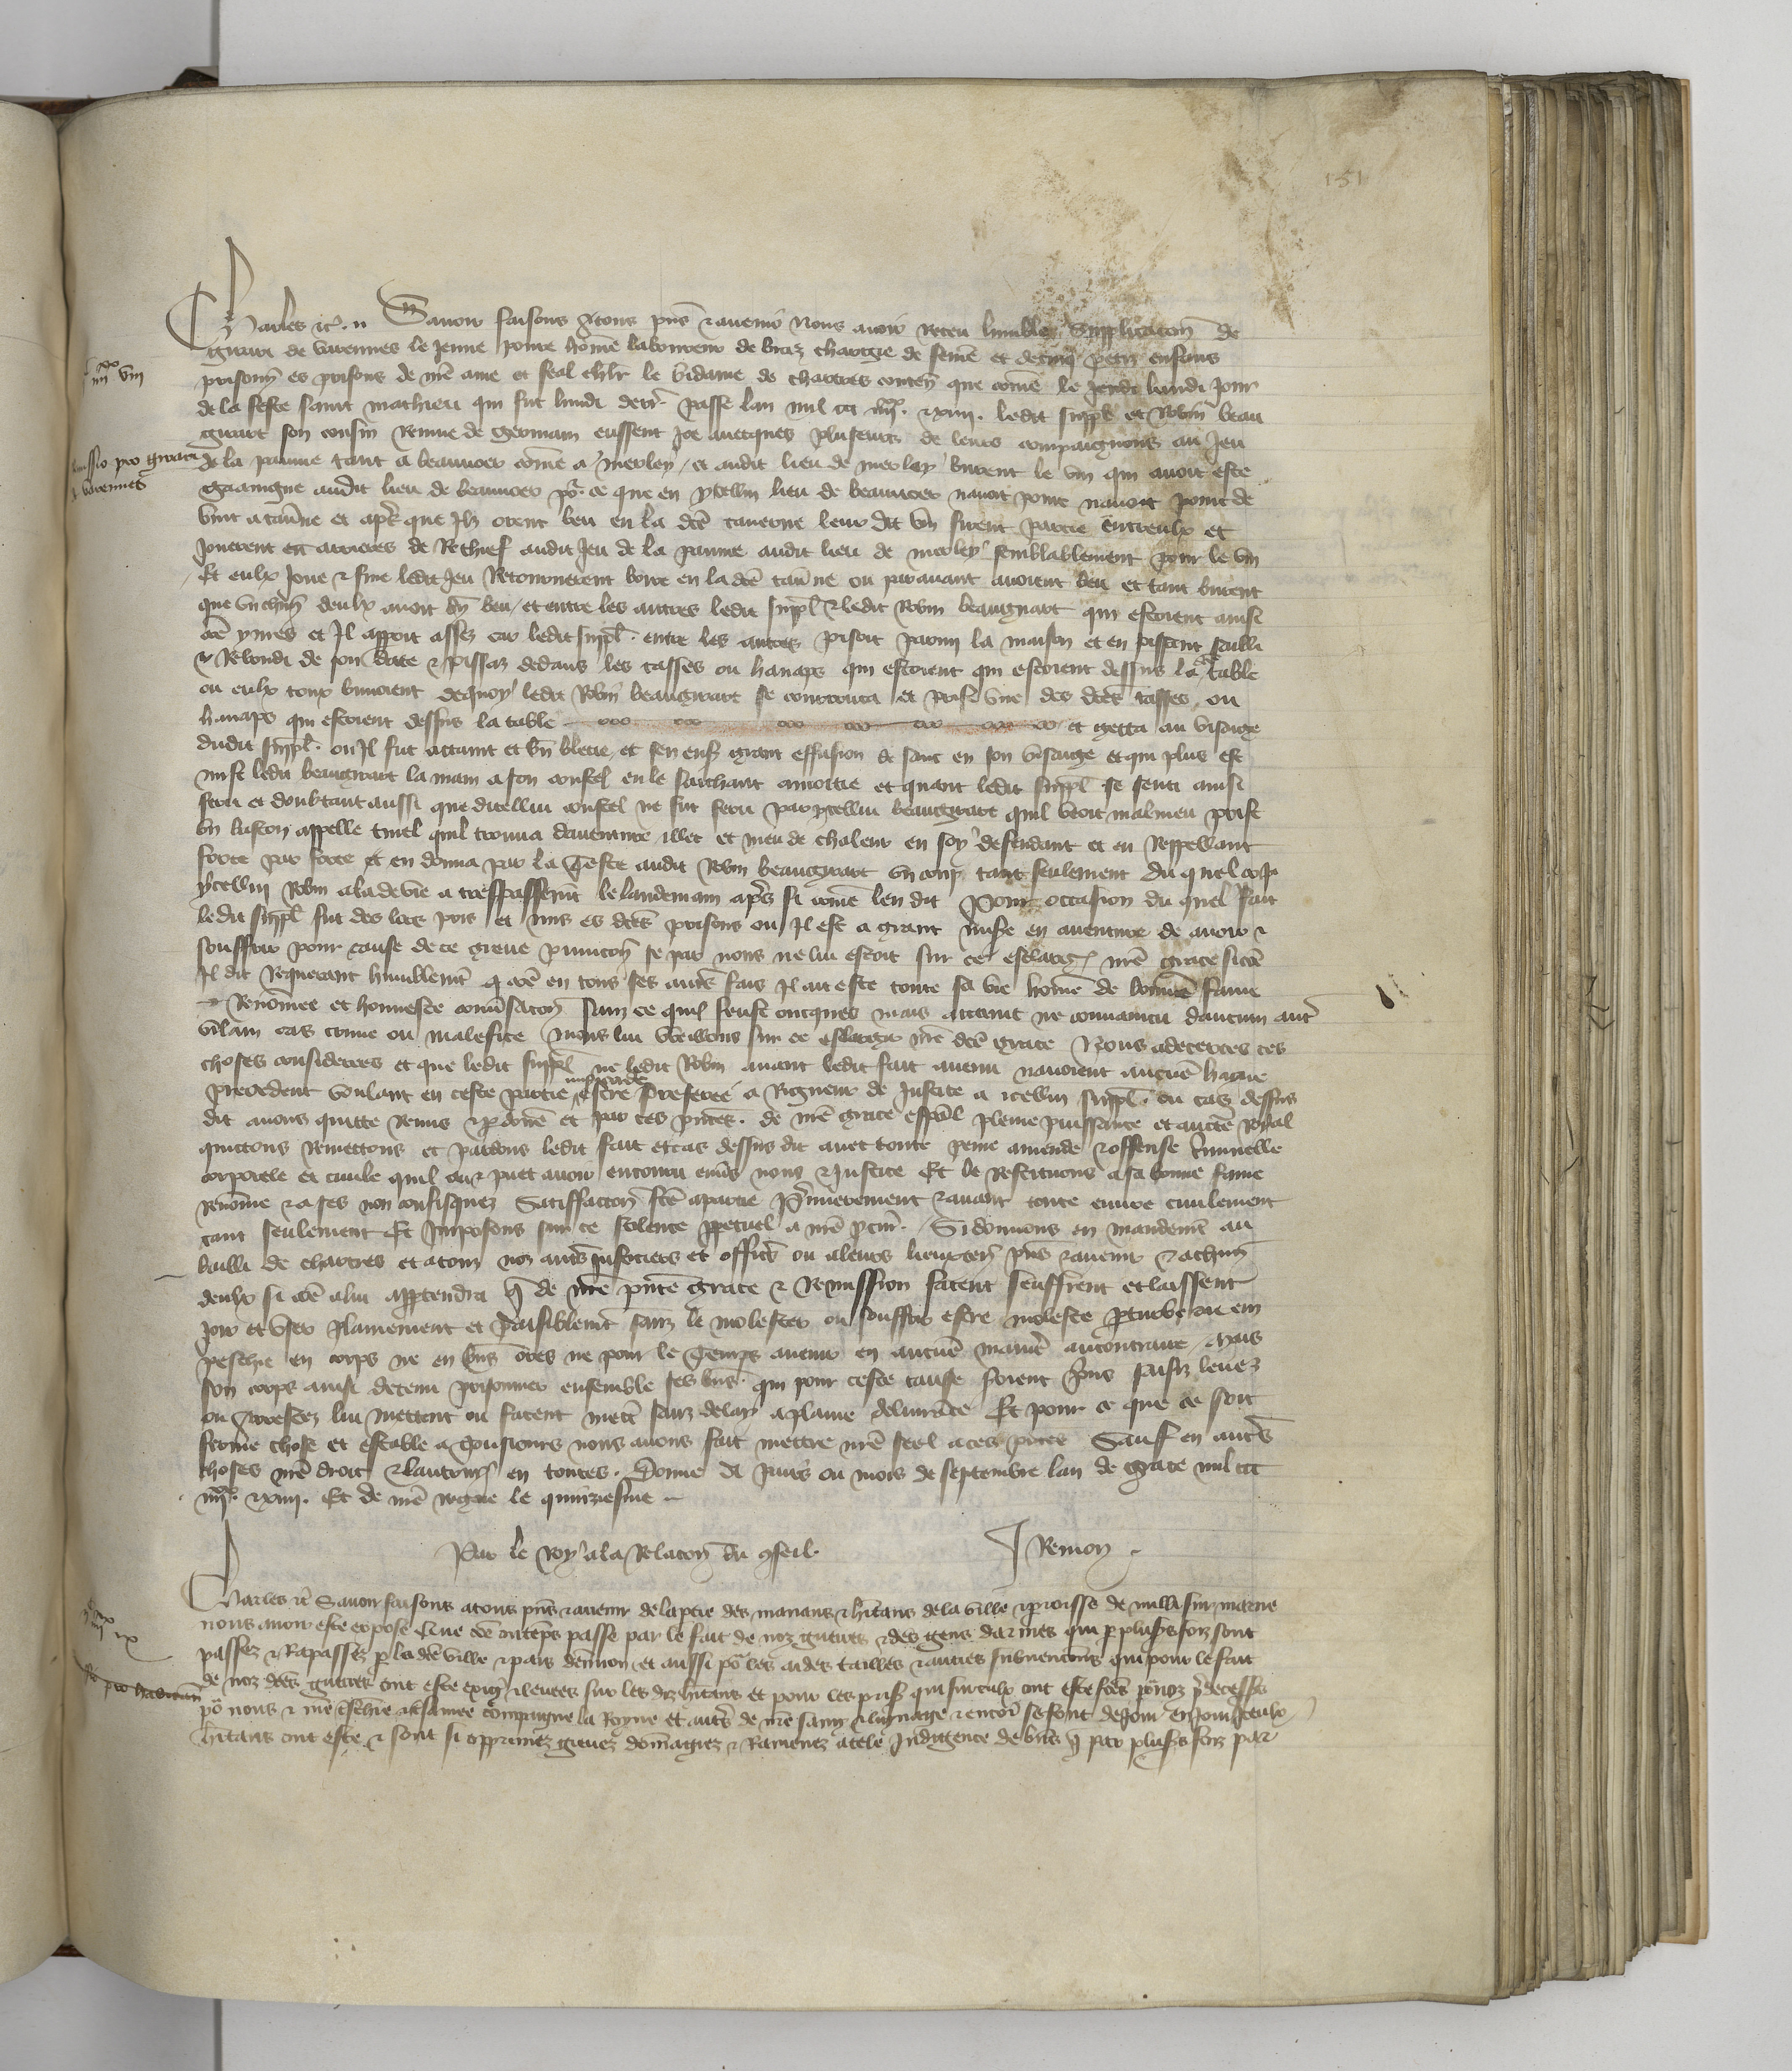 151
Charles etc. Savoir faisons a tous pns et avenir Nous avoir receu lumble supplicacon de
girart de varennes le jeune povre home laboureur de braz chargie de feme et de cinq petiz enfans
prisonn es prisons de nre ame et feal chlr le vidame de chartres conten que come le jeudi lundi jour
de la feste saint mathieu qui fut lundi derr passe lan mil ccc iiiixx et xiiii. ledit suppl et Robin beau
girart son cousin Remue de germain eussent joe avecques pluseurs de leurs compaignons au jeu
de la paume tant a beauvoer come a merley / et audit lieu de merley burent le vin qui avoit este
gaaingne audit lieu de beauvoer por ce que en ycellui lieu de beauvoer navoit point navoit point de
vin a taverne et apres que ilz orent beu en la dce taverne leur dit vin firent partie entreulx et
jouerent en arrieres de Rechief audit jeu de la paume audit lieu de merley semblablement pour le vin
Et eulx joue et fine ledit jeu Retournerent boire en la dce taverne ou paravant avoient beu et tant burent
que un chun deulx avoit bn beu / et entre les autres ledit suppl et ledit Robin beaugirart qui estoient ainsi
coe yvres et il apparoit assez car ledit suppl. entre les autres pissoit parmi la maison et en pissant sailli
et Rebondi de son dite pissaz dedans les tasses ou hanaps qui estoient qui estoient dessus la dce table
ou eulx touz buvoient dequoy ledit Robin beaugirart se courrouca et prist une des dces tasses ou
hanaps qui estoient dessus la table et getta au visaige
dudit suppl. ou il fut attaint et bn blecie / et sen ensuy grant effusion de sanc en son visaige et qui plus est
mist ledit beaugirart la main a son coustel en le sachant a moitie et quant ledit suppl se senti ainsi
feru et doubtant aussi que dicellui coustel ne fut feru par ycellui beaugirart quil veoit malmeu prist
un baston appelle tinel quil trouva daventure illec et meu de chaleur en soy defendant et en Reppellant
force par force et en donna par la teste audit Robin beaugirart un coup tant seulement du quel cop
ycellui Robin ala de vie a trespassement le landemain apres si come len dit Pour occasion du quel fait
ledit suppl fut des lors pris et mis es dces prisons ou il est a grant misere en aventure de avoir et
souffrir pour cause de ce greve punicon se par nous ne lui estoit sur ce eslargi nre grace sicoe
il dit Requerant humblement q coe en tous ses autres fais il ait este toute sa vie home de bonne fame
Renomee et honneste conversacon sanz ce quil feust oncques mais attaint ne convaincu daucun autre
vilain cas crime ou malefice Nous lui vueillons sur ce eslargir nre dce grace Nous adecertes ces
choses considerees et que ledit suppl ne ledit Robin avant ledit fait avenu navoient aucune hayne
precedent voulant en ceste partie misericorde estre preferee a Rigueur de justice a icellui suppl. ou cas dessus
dit avons quitte Remis et pardone et par ces pntes. de nre grace especial pleine puissance et auctorite Royal
quictons Remettons et pardonons ledit fait et cas dessus dit avec toute peine amende et offense criminelle
corporele et civile quil a et puet avoir encouru envers nous et justice Et le Restituons a sa bonne fame
renomee et a ses non confisquez Satisfaction fce a partie premierement et avant toute euvre civilement
tant seulement Et Imposons sur ce silence ppetuel a nre procureur. Si donnons en mandement au
bailli de chartres et a touz noz autres justiciers et offic ou a leurs lieuxten pns et avenir et a chun
deulx si coe a lui appartendra q de nre pnte grace et Remission facent seuffrent et laissent
joir et user plainement et paisiblement sanz le molester ou souffrir estre moleste perturbe ou em
peschie en corps ne en biens ores ne pour le temps avenir en aucune maniere au contraire / Mais
son corps ainsi detenu prisonnier ensemble ses biens. qui pour ceste cause seroient prins saisiz levez
ou arrestez lui mettent ou facent mettre sanz delay a plaine delivrance Et pour ce que ce soit
ferme chose et estable a tousiours nous avons fait mettre nre seel a ces pntes Sauf en autres
choses nre droit et lautruy en toutes. Donne a Paris ou mois de septembre lan de grace mil ccc
iiiixx et xiiii. Et de nre regne le quinziesme
Par le Roy a la Relacon du conseil. J Remon
Charles etc Savoir faisons a tous pns et avenir de la partie des manans et habitans de la ville et paroisse de milli sur marne
nous avoir este expose Que coe ou temps passe par le fait de noz guerres et des gens darmes qui par pluss foiz sont
passez et Rapassez par la dce ville et pais denviron et aussi por les aides tailles et autres subvencions qui pour le fait
de noz dces guerres ont este exig et levees sur les diz habitans et pour les prises qui sur eulx ont este fces por noz predecess
por nous et nre tschiere et tsamee compaigne la Royne et autres de nre sanc et lignage et encores se font de jour en jour iceulx
habitans ont este et sont si opprimez grevez domagiez et Ramenez a tele Indigence de biens q par pluss foiz par
iiiixx viii
Remissio pro girart
de varennes
iiiixx ix
pro habitan